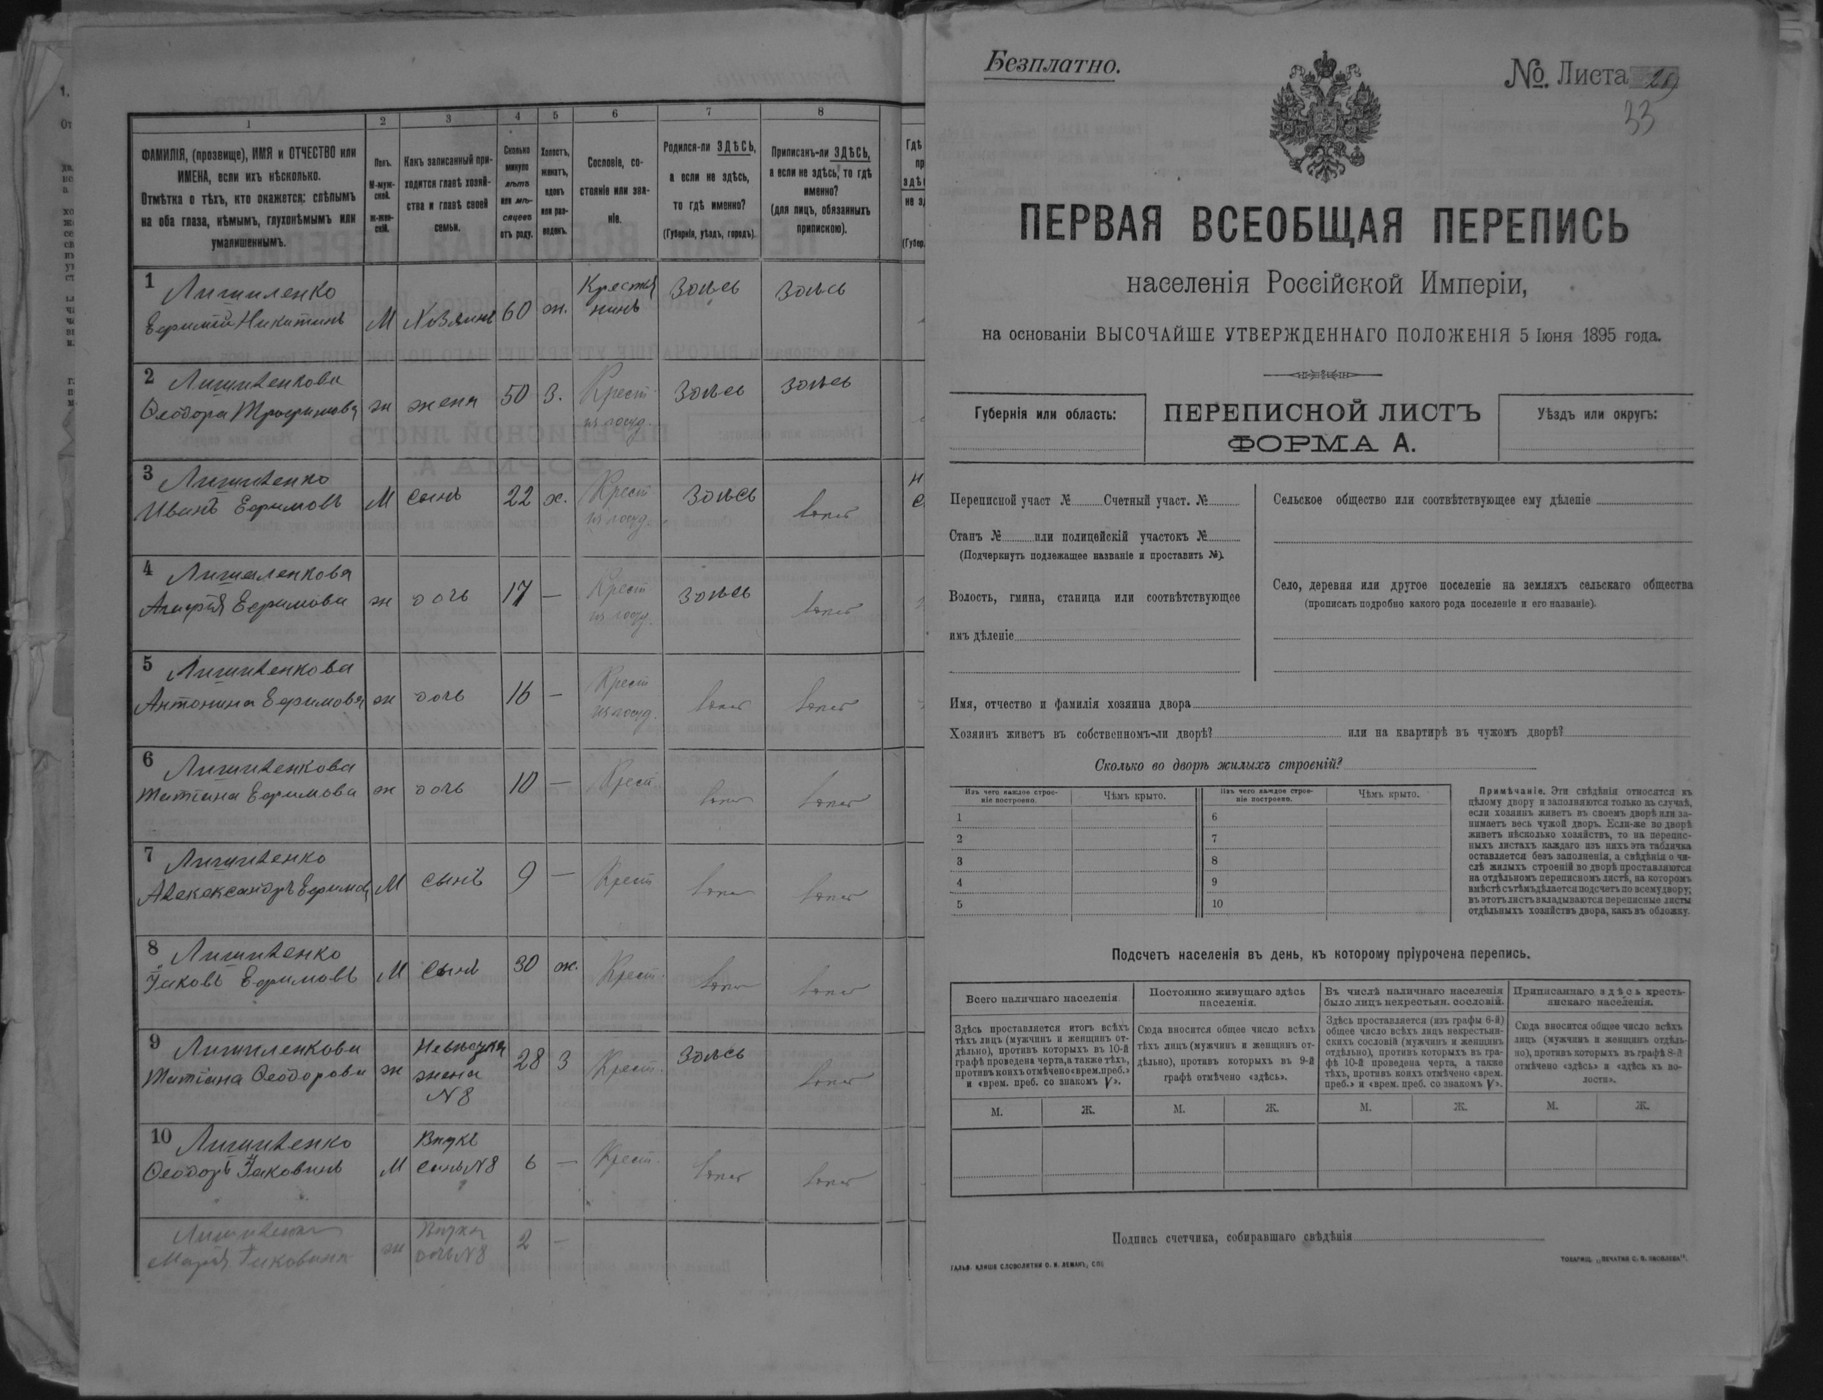 1 2 3 4 5 6 7 8
ФАМИЛІЯ, (прозвище), ИМЯ и ОТЧЕСТВО или
ИМЕНА, если ихъ нѣсколько.
Отмѣтка о тѣхъ, кто окажется: слѣпымъ
на оба глаза, нѣмымъ, глухонѣмымъ или
умалишеннымъ.
Полъ.
М-муж-
ской.
ж-жен-
скій.
Какъ записанный при-
ходится главѣ хозяй-
ства и главѣ своей
семьи.
Сколько
минуло
лѣтъ
или мѣ-
сяцевъ
отъ роду.
Холостъ,
женатъ,
вдовъ
или раз-
веденъ.
Сословіе, со-
стояніе или зва-
ніе.
Родился-ли ЗДѢСЬ,
а если не здѣсь,
то гдѣ именно?
(Губернія, уѣздъ, городъ).
Приписанъ-ли ЗДѢСЬ,
а если не здѣсь, то гдѣ
именно?
(для лицъ, обязанныхъ
припискою).
1
Ефимій Никитинъ М Хозяинъ 60 ж. Крестья
нинъ Здѣсь Здѣсь
2
Ѳеодора Трофимова ж жена 50 З. Крест Здѣсь Здѣсь
3
Иванъ Ефимовъ М сынъ 22 х. Крест Здѣсь
4
Ефимова ж дочь 17 — Крест Здѣсь
5
Антонина Ефимова ж дочь 16 — Крест
6
Татіана Ефимова ж дочь 10 — Крест
7
Александръ Ефимов М сынъ 9 — Крест
8
Іаковъ Ефимовъ М сынъ 30 ж. Крест.
9
Татіана Ѳеодорова ж Невѣстка
жена
N8 28 З Крест. Здѣсь
10
Ѳеодоръ Іаковлевъ М Внукъ
сынъ N8 6 — Крест.
Марія ж Внука
дочь N8 2 —
Безплатно.
№ Листа 29
33
ПЕРВАЯ ВСЕОБЩАЯ ПЕРЕПИСЬ
населенія Россійской Имперіи,
на основаніи ВЫСОЧАЙШЕ УТВЕРЖДЕННАГО ПОЛОЖЕНІЯ 5 Іюня 1895 года.
Губернія или область:
ПЕРЕПИСНОЙ ЛИСТЪ
ФОРМА А.
Уѣздъ или округъ:
Переписной участ № Счетный участ. №
Станъ № или полицейскій участокъ №
(Подчеркнуть подлежащее названіе и проставить №).
Волость, гмина, станица или соотвѣтствующее
имъ дѣленіе
Сельское общество или соотвѣтствующее ему дѣленіе
Село, деревня или другое поселеніе на земляхъ сельскаго общества
(прописать подробно какого рода поселеніе и его названіе).
Имя, отчество и фамилія хозяина двора
Хозяинъ живетъ въ собственномъ-ли дворѣ? или на квартирѣ въ чужомъ дворѣ?
Сколько во дворѣ жилыхъ строеній?
Изъ чего каждое строе-
ніе построено.
Чѣмъ крыто.
Изъ чего каждое строе-
ніе построено.
Чѣмъ крыто.
1 6
2 7
3 8
4 9
5 10
Примѣчаніе. Эти свѣдѣнія относятся къ
цѣлому двору и заполняются только въ случаѣ,
если хозяин живетъ въ своемъ дворѣ или за-
нимаетъ весь чужой дворъ. Если-же во дворѣ
живетъ нѣсколько хозяйствъ, то на перепис-
ныхъ листахъ каждаго изъ нихъ эта табличка
оставляется безъ заполненія, а свѣдѣнія о чи-
слѣ жилыхъ строеній во дворѣ проставляются
на отдѣльномъ переписномъ листѣ, на которомъ
вмѣстѣ съ тѣмъ дѣлается подсчетъ по всему двору;
въ этотъ листъ вкладываются переписные листы
отдѣльныхъ хозяйствъ двора, какъ въ обложку.
Подсчетъ населенія въ день, къ которому пріурочена перепись.
Всего наличнаго населенія
Здѣсь проставляется итогъ всѣхъ
тѣхъ лицъ (мужчинъ и женщинъ от-
дѣльно), противъ которыхъ въ 10-й
графѣ проведена черта, а также тѣхъ,
противъ коихъ отмѣчено «врем. преб.»
и «врем. преб. со знакомъ V».
Постоянно живущаго здѣсь
населенія.
Сюда вносится общее число всѣхъ
тѣхъ лицъ (мужчинъ и женщинъ от-
дѣльно), противъ которыхъ въ 9-й
графѣ отмѣчено «здѣсь».
Въ числѣ наличнаго населенія
было лицъ некрестьян. сословій.
Здѣсь проставляется (изъ графы 6-й)
общее число всѣхъ лицъ некрестьян-
скихъ сословій (мужчинъ и женщинъ
отдѣльно), противъ которыхъ въ гра-
фѣ 10-й проведена черта, а также
тѣхъ, противъ коихъ отмѣчено «врем.
преб.» и «врем. преб. со знакомъ V».
Приписаннаго здѣсь кресть-
янскаго населенія.
Сюда вносится общее число всѣхъ
лицъ (мужчинъ и женщинъ отдѣль-
но), противъ которыхъ въ графѣ 8-й
отмѣчено «здѣсь» и «здѣсь въ во-
лости».
М. Ж. М. Ж. М. Ж. М. Ж.
Подпись счетчика, собиравшаго свѣдѣнія
ГАЛЬВ. КЛИШЕ СЛОВОЛИТНИ О. И. ЛЕМАНЪ, СПБ.